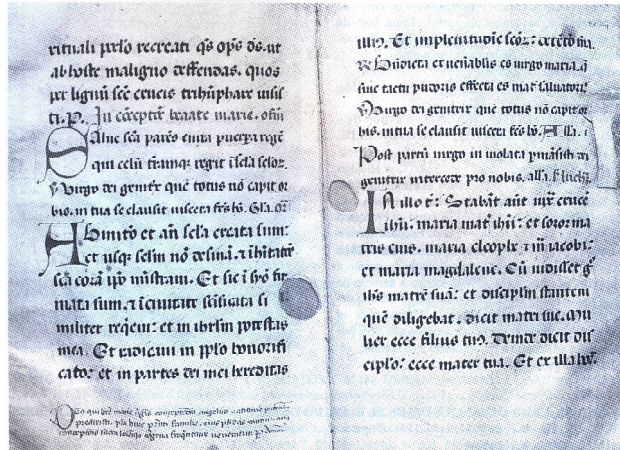 rituali p̄lo recreati q̄s op̄s ds̄. ut
ab hoste maligno deffendas. quos
per lignū scē crucis triūphare iusis
ti. P. In cōceptōe beate marie. ofm̄
Salue scā parēs enixa puerpa regē
qui celū terramq; regit ī scla sclor.
℣ Virgo dei genitr̄ quē totus nō capit or
bis. in tua se clausit uiscera fc̄s hō. Gla. or̄
Ab initio et an̄ scla creata sum:
et usq; ad futurū sclm nō desinā. ⁊ ī hītatōe
scā corā ip̄o mīstraui. Et sic ī syō fir
mata sum. ⁊ ī ciuitate scīficata si
militer req̄eui: et in ihrlm potestas
mea. Et radicaui in pp̄lo honorifi
cato: et in partes dei mei hereditas
Ds qui btē marie ūgīs conceptōem angelico
predixisti. pia huic
conceptōis sacra solēnia
illī. Et in plenitudīe scōr: detētō mā.
℟ Bn̄dicta et uen̄abilis es uirgo maria. q̄
sine tactu pudoris effecta es mat̄ saluatoris
℣ Virgo dei genitrix quē totus nō capit or
bis. in tua se clausit uiscera fc̄s hō. Alla. ℣
Post partū uirgo in uiolata pmāsisti dei
genitrix intercede pro nobis. alla.
In illo t̄: Stabāt aūt iux̄ crucē
ihū: maria mat̄ ihū: et soror ma
tris eius. maria cleophe ⁊ m̄ iacobi:
et maria magdalene. Cū uidisset g̊
ihs matrē suā: et discip̄lm stantem
quē diligebat. dicit matri sue. mu
lier ecce filius tuꝰ. Deinde dicit dis
cip̄lo: ecce mater tua. Et ex illa ho